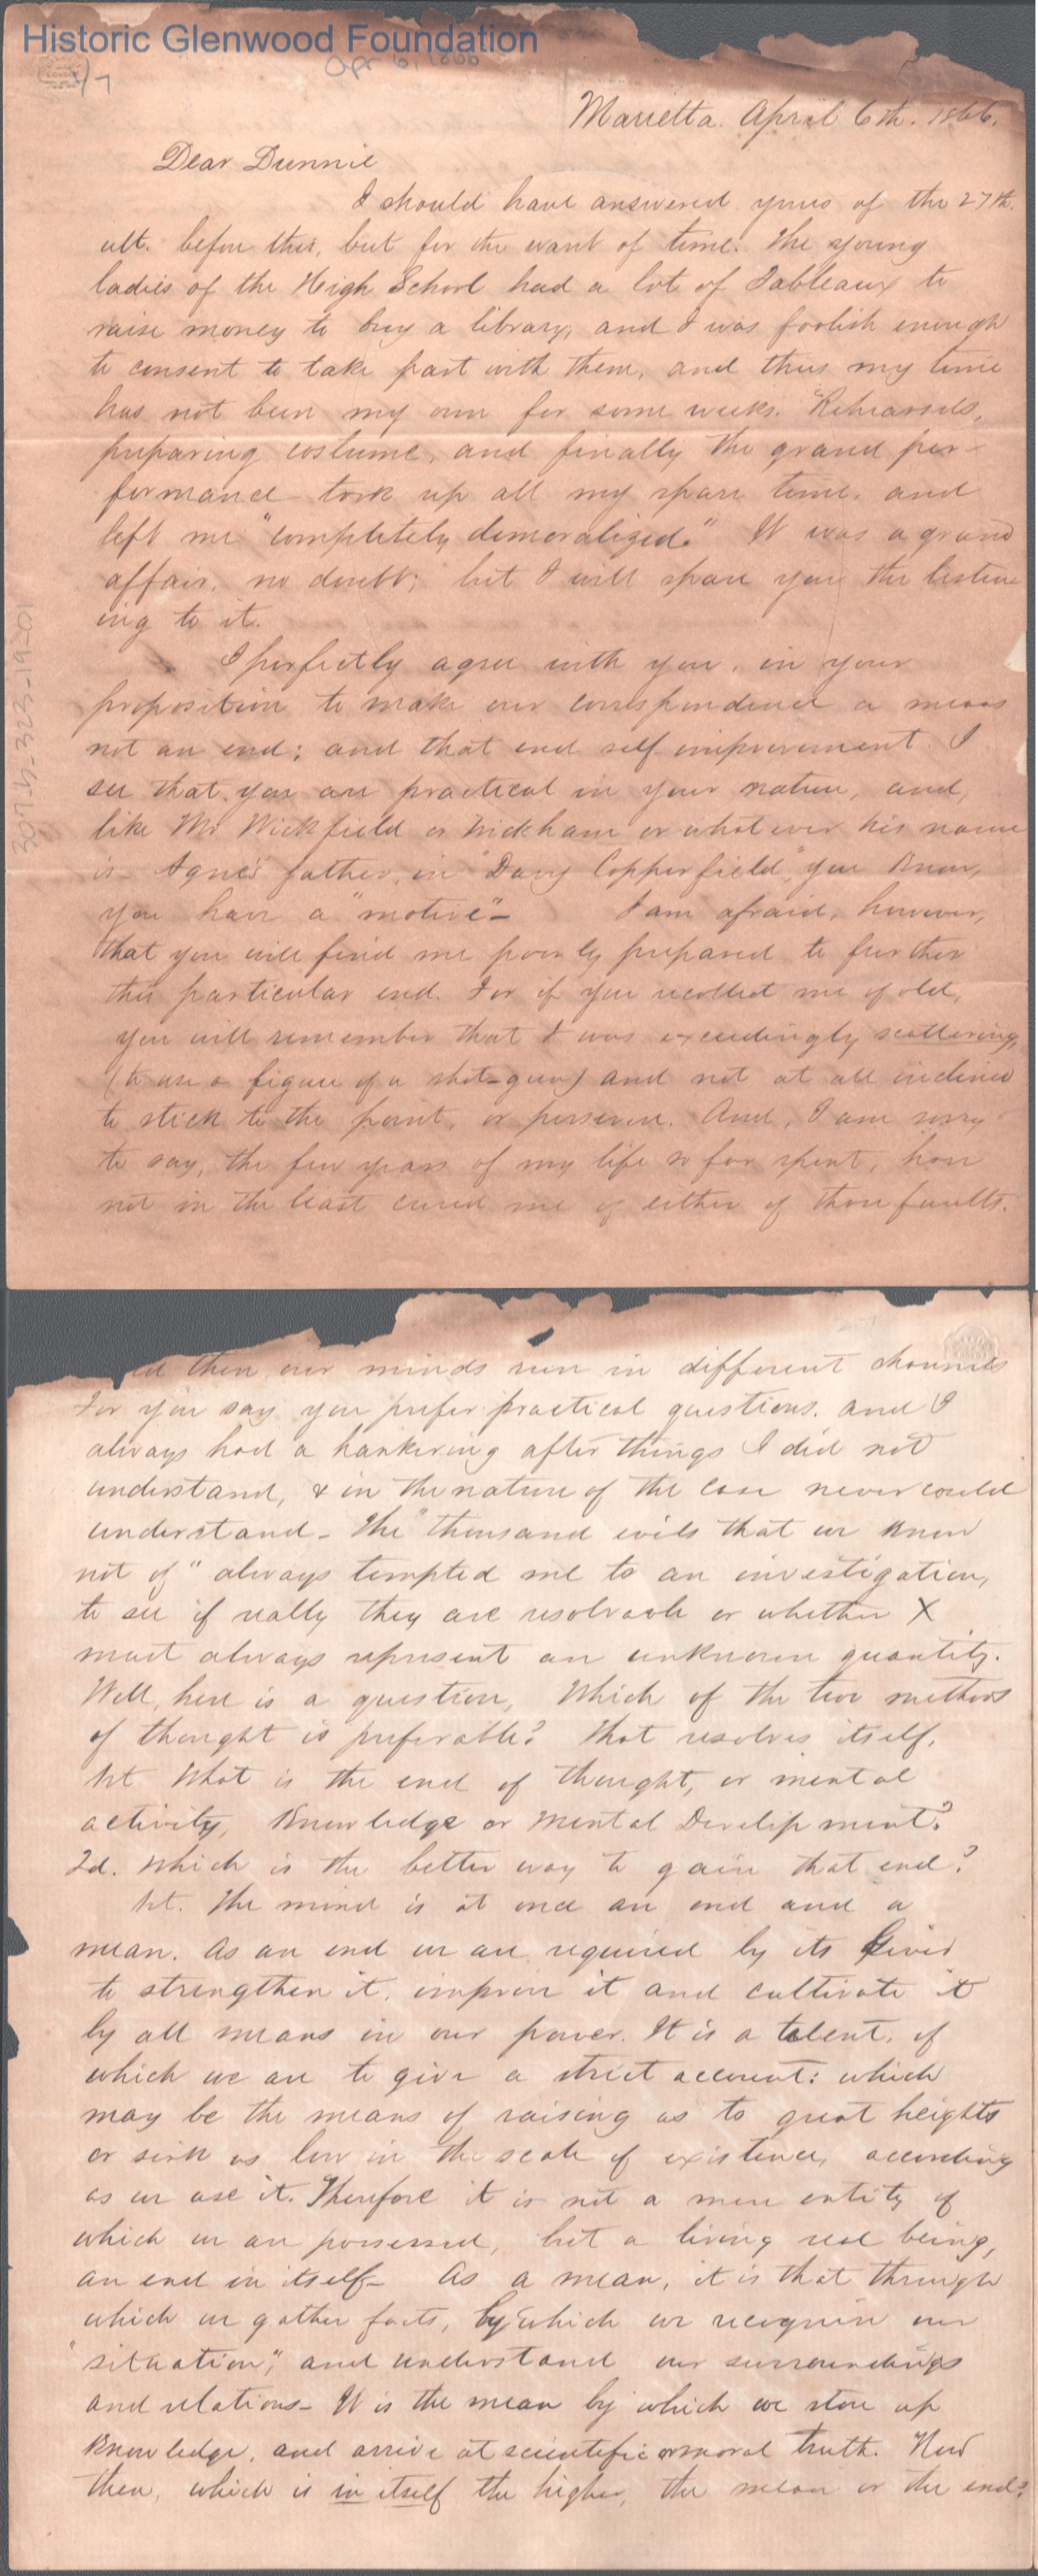 Historic Glenwood Foundation
Apr 6, 1866
1/7
Marietta. April 6th. 1866.
Dear Dunnie
I should have answered yours of the 27th.
ult. before this, but for the want of time. The young
ladies of the High School had a lot of Tableaux to
raise money to buy a library, and I was foolish enough
to consent to take part with them, and thus my time
has not been my own for some weeks. Rehearsals,
preparing costume, and finally the grand per-
formance took up all my spare time, and
left me "completely demoralized." It was a grand
affair, no doubt; but I will spare you the listen
ing to it.
I perfectly agree with you, in your
proposition to make our correspondence a means
not an end; and that end self improvement. I
see that you are practical in your nature, and,
like Mr Wickfield or Wickham or whatever his name
is - Agnes' father, in "Davy Copperfield," you know,
you have a "motive" - I am afraid, however,
that you will find me poorly prepared to further
this particular end. For if you recollect me of old,
you will remember that I was exceedingly scattering,
(to use a figure of a shot-gun) and not at all inclined
to stick to the point, or persevere. And, I am sorry
to say, the few years of my life so far spent, have
not in the least cured me of either of those faults.
307-4-323-19-01
then our minds run in different channels
For you say you prefer practical questions, and I
always had a hankering after things I did not
understand, & in the nature of the case never could
understand - The "thousand evils that we know
not of" always tempted me to an investigation,
to see if really they are resolvable or whether X
must always represent an unknown quantity.
Well, here is a question, Which of the two methods
of thought is preferable? That resolves itself,
1st What is the end of thought, or mental
activity, Knowledge or Mental Development?
2d. Which is the better way to gain that end?
1st. The mind is at once an end and a
mean. As an end we are required by its Giver
to strengthen it, improve it and cultivate it
by all means in our power. It is a talent, of
which we are to give a strict account: which
may be the means of raising us to great heights
or sink us low in the scale of existence, according
as we use it. Therefore it is not a mere entity of
which we are possessed, but a living real being,
an end in itself - As a mean, it is that through
which we gather facts, by which we recognize our
"situation", and understand our surroundings
and relations - It is the mean by which we store up
Knowledge, and arrive at scientific or moral truth. Now
then, which is in itself the higher, the mean or the end?